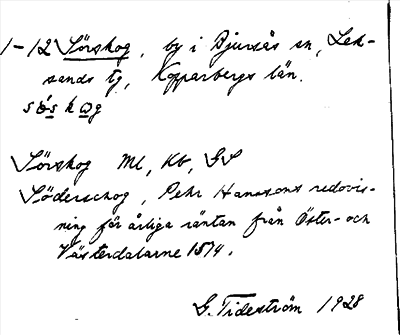 1-12 Sörskog, by i Bjursås sn, Lek-
sands tg, Kopparbergs län.
sö́skog
Sörskog Ml, Kb, GS
Söderschog, Pehr Hanssons redovis-
ning för årliga räntan från Öster- och
Västerdalarne 1574.
G. Tideström 1928